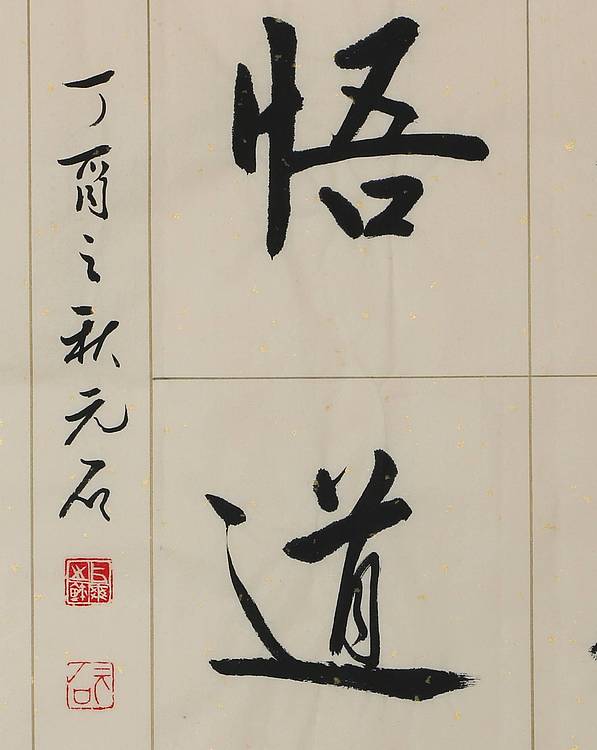 悟道
丁酉之秋元石